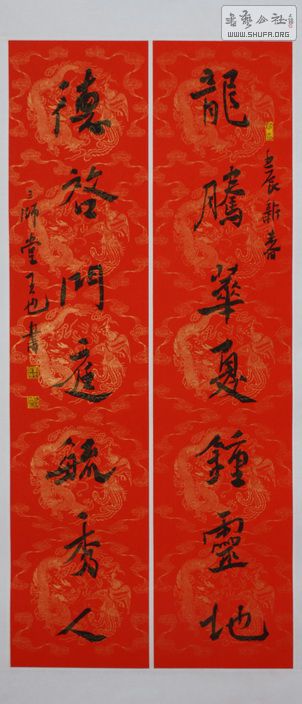 龍騰華夏鍾靈地
壬辰新春
德啓門庭毓秀人
三師堂王也書
書藝公社
WWW.SHUFA.ORG